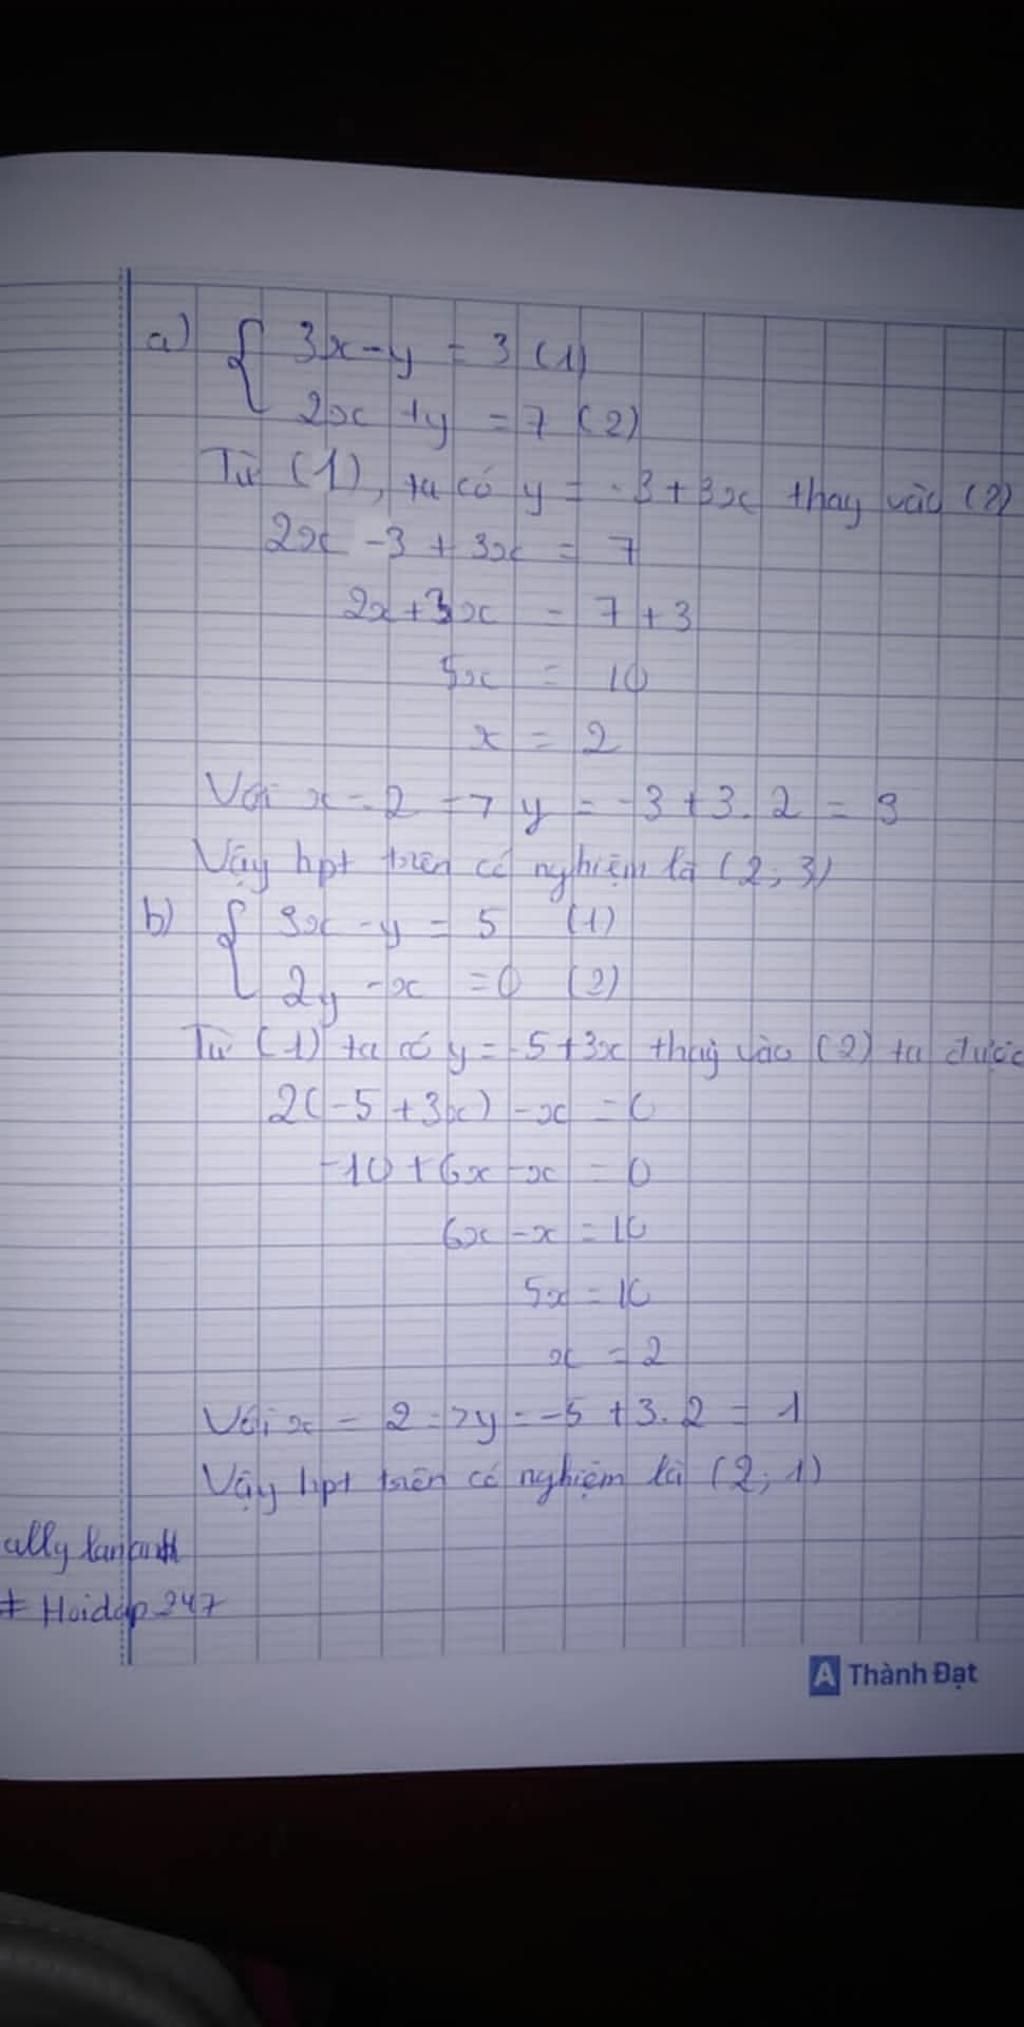 a) { 3x - y = 3 (1)
2x + y = 7 (2)
Từ (1), ta có y = -3 + 3x thay vào (2)
2x - 3 + 3x = 7
2x + 3x = 7 + 3
5x = 10
x = 2
Với x = 2 => y = -3 + 3.2 = 3
Vậy hpt trên có nghiệm là (2; 3)
b) { 3x - y = 5 (1)
2y - x = 0 (2)
Từ (1) ta có y = -5 + 3x thay vào (2) ta được
2(-5 + 3x) - x = 0
-10 + 6x - x = 0
6x - x = 10
5x = 10
x = 2
Với x = 2 => y = -5 + 3.2 = 1
Vậy hpt trên có nghiệm là (2; 1)
ally
# Hoidap247
A Thành Đạt